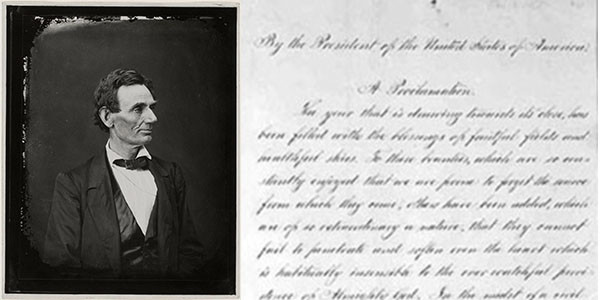 By the President of the United States of America.
A Proclamation.
The year that is drawing towards its close, has
been filled with the blessings of fruitful fields and
healthful skies. To these bounties, which are so con-
stantly enjoyed that we are prone to forget the source
from which they come, others have been added, which
are of so extraordinary a nature, that they cannot
fail to penetrate and soften even the heart which
is habitually insensible to the ever watchful provi-
dence of Almighty God. In the midst of a civil